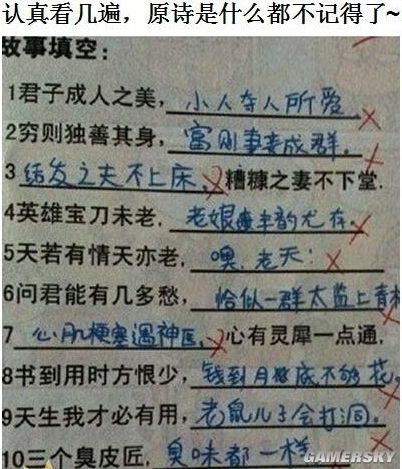 认真看几遍，原诗是什么都不记得了~
故事填空：
1君子成人之美，小人夺人所爱。
2穷则独善其身，富则妻妾成群。
3结发之夫不上床，糟糠之妻不下堂.
4英雄宝刀未老，老娘丰韵尤存。
5天若有情天亦老，噢，老天！
6问君能有几多愁，恰似一群太监上青楼
7心肌梗塞遇神医，心有灵犀一点通，
8书到用时方恨少，钱到月底不够花。
9天生我才必有用，老鼠儿子会打洞。
10三个臭皮匠，臭味都一样
GAMERSKY